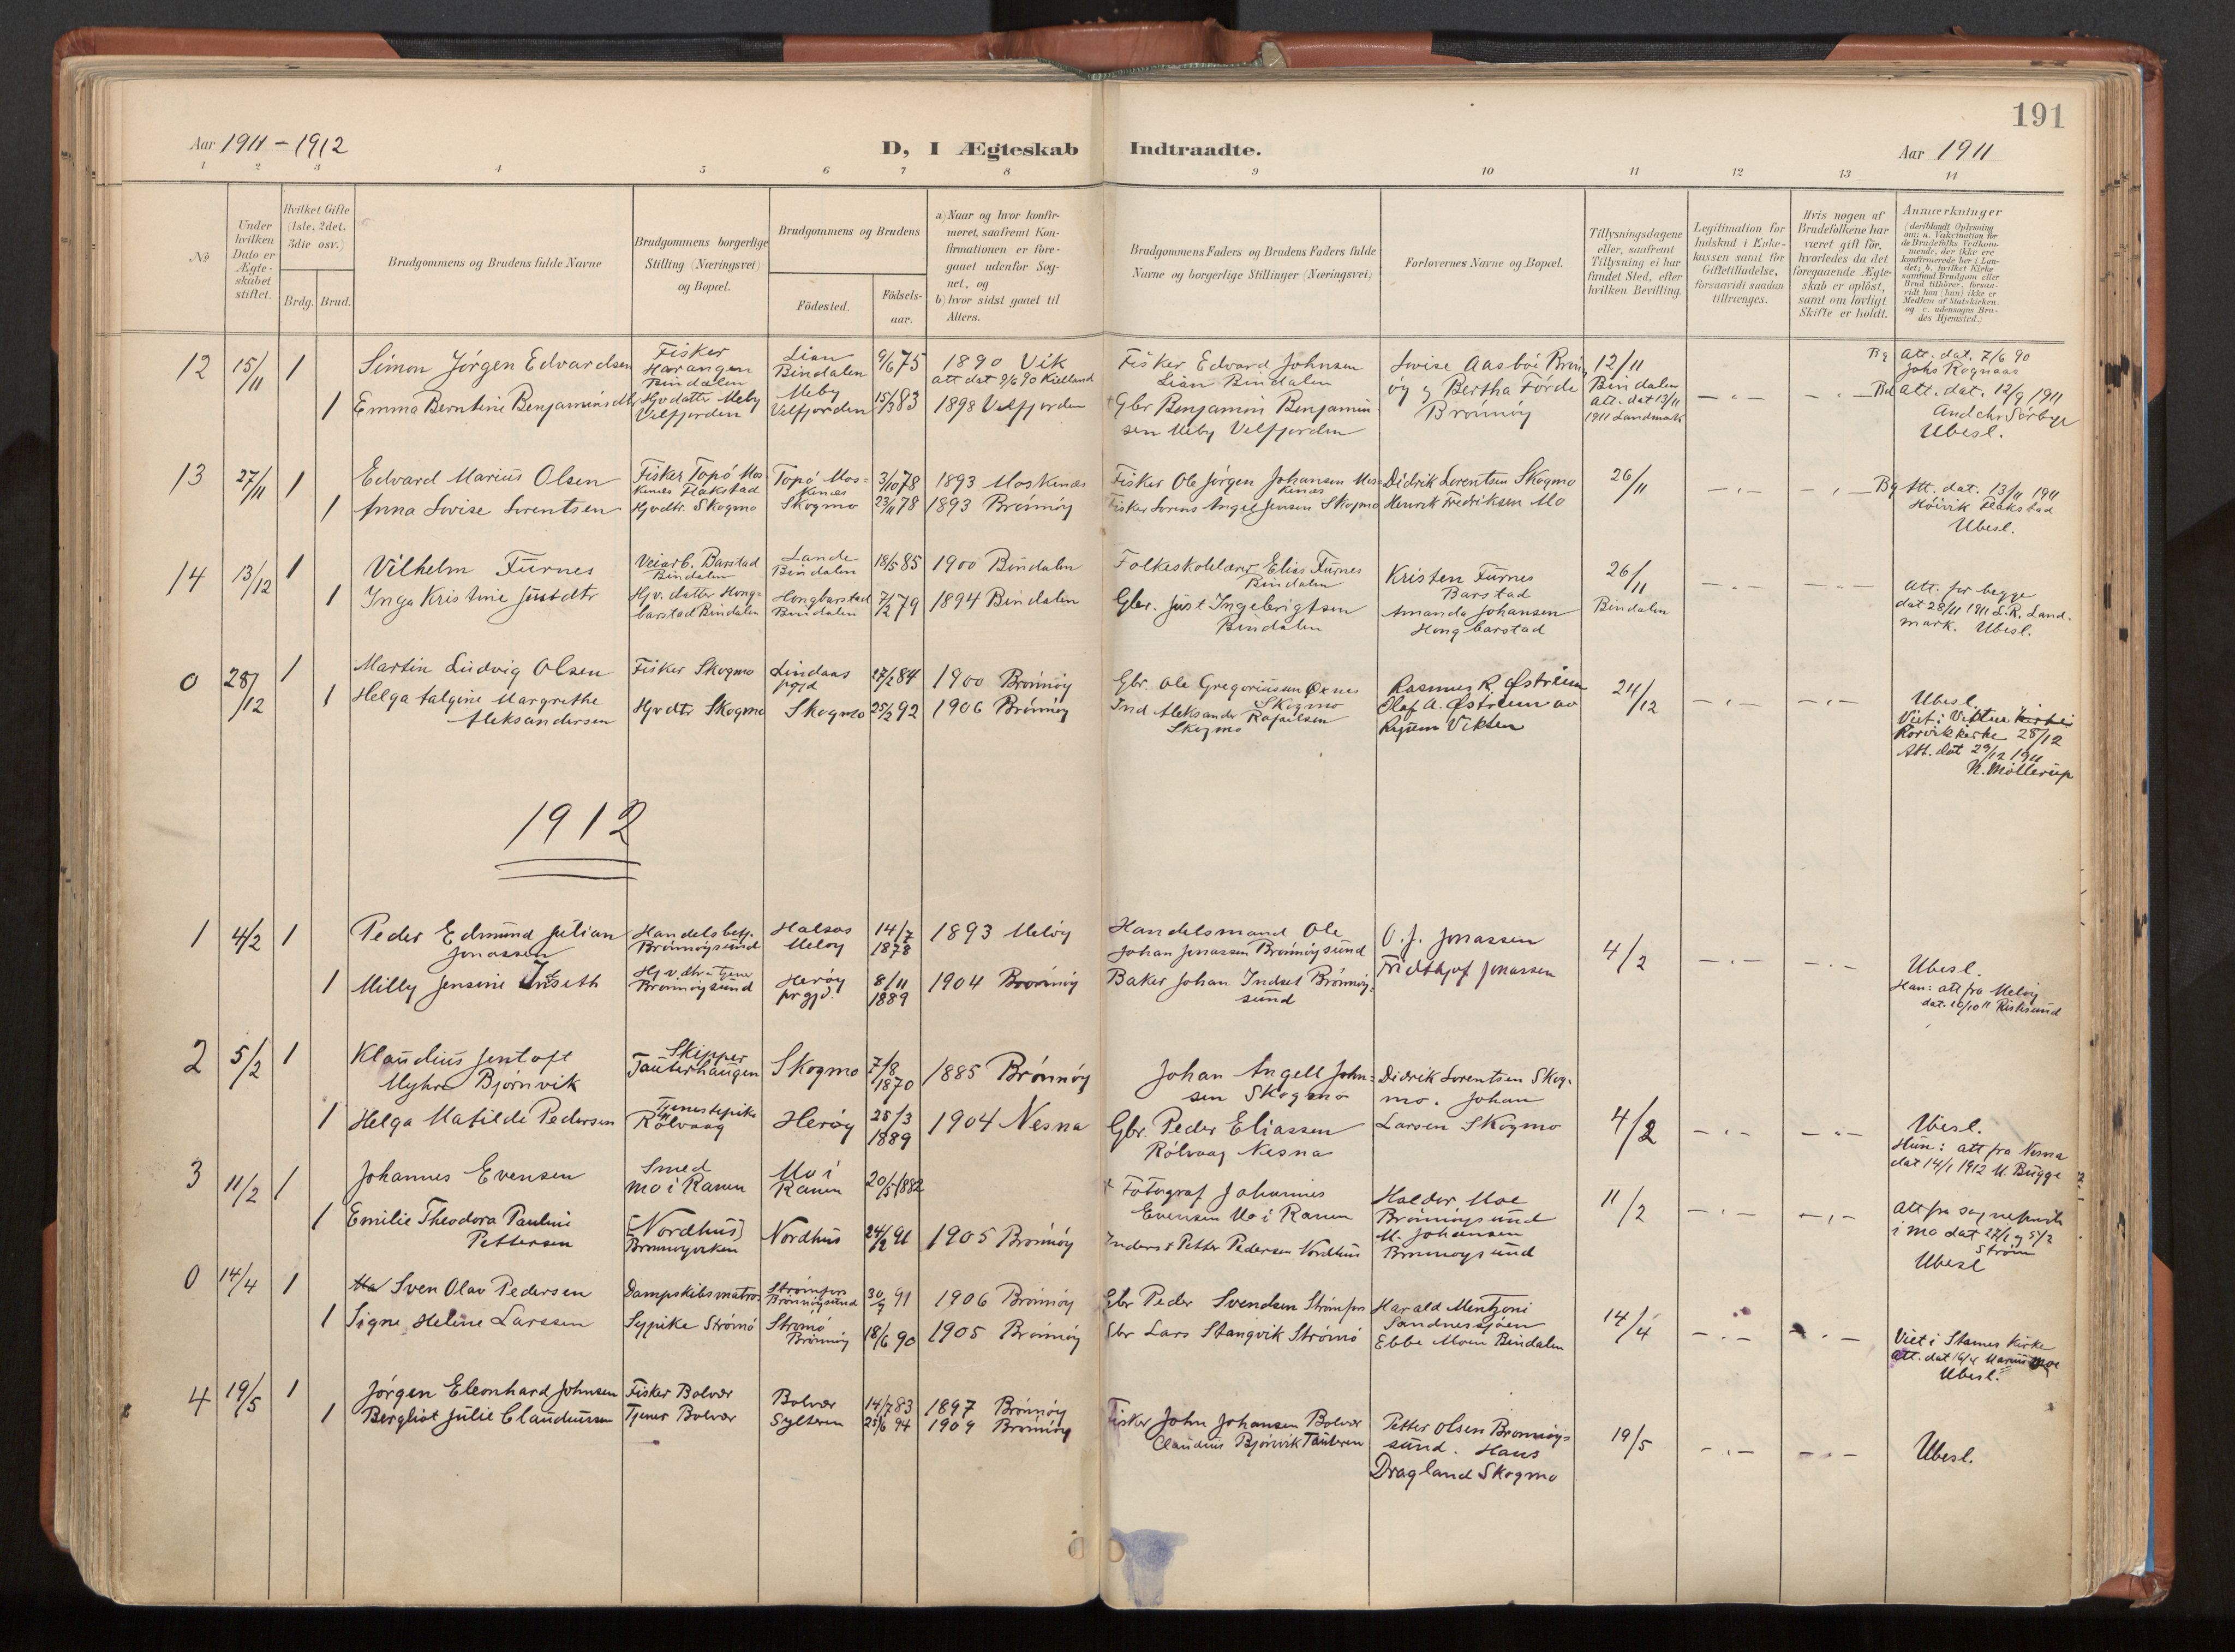 191
Aar 1911 - 1912
D, I Ægteskab Indtraadte.
Aar 1911
1 2 3 4 5 6 7 8 9 10 11 12 13 14
No
Under hvilken Dato er Ægteskabet stiftet.
Hvilket Gifte (1ste, 2det, 3die osv.)
Brdg. Brud.
Brudgommens og Brudens fulde Navne
Brudgommens borgerlige Stilling (Næringsvei) og Bopæl.
Brudgommens og Brudens
Födested.
Födsels-aar.
a) Naar og hvor konfir-
meret, saafremt Kon-
firmationen er fore-
gaaet udenfor Sog-
net, og
b) hvor sidst gaaet til
Alters.
Brudgommens Faders og Brudens Faders fulde
Navne og borgerlige Stillinger (Næringsvei)
Forlovernes Navne og Bopæl.
Tillysningsdagene
eller, saafremt
Tillysning ei har
fundet Sted, efter
hvilken Bevilling.
Legitimation for
Indskud i Enke-
kassen samt for
Giftetilladelse,
forsaavidt saadan
tiltrænges.
Hvis nogen af
Brudefolkene har
været gift för,
hvorledes da det
foregaaende Ægte-
skab er oplöst,
samt om lovligt
Skifte er holdt.
Anmærkninger
(deriblandt Oplysning
om: a. Vakcination for
de Brudefolks Vedkom-
mende, der ikke ere
konfirmerede her i Lan-
det; b. hvilket Kirke-
samfund Brudgom eller
Brud tilhörer, forsaa-
vidt han (hun) ikke er
Medlem af Statskirken.
og c. udensogns Bru-
des Hjemsted.)
12 15/11 1 Simon Jörgen Edvardsen Fisker Harangen Bindalen Lian Bindalen 9/6 75 1890 Vik att dat 9/6 90 Kielland Fisker Edvard Johnsen Lian Bindalen
1 Emma Berntine Benjaminsdtr Hjv datter Meby Velfjorden Meby Velfjorden 15/3 83 1898 Velfjorden + Gbr Benjamin Benjaminsen Meby Velfjorden
Lovise Aasböe Brönnöy og Bertha Förde Brönnöy 12/11 Bindalen att. dat 13/11 1911 Landmark
Bg att. dat. 7/6 90 Johs Rognaas
Bd att. dat. 12/9 1911 And chr Sörbye
Ubesl.
13 27/11 1 Edvard Marius Olsen Fisker Topö Moskenes Flakstad Topö Moskenes 3/10 78 1893 Moskenes Fisker Ole Jörgen Johansen Moskenes Didrik Lorentsen Skogmo 26/11
1 Anna Lovise Lorentsen Hjvdtr. Skogmo Skogmo 23/11 78 1893 Brönnöy Fisker Lorens Angel Jensen Skogmo Henrik Fredriksen Mo
Bg Att. dat. 13/11 1911 Höivik Flakstad
Ubesl.
14 13/12 1 Vilhelm Furnes Veiarb. Barstad Bindalen Lande Bindalen 18/5 85 1900 Bindalen Folkeskolelærer Elias Furnes Bindalen Kristen Furnes Barstad 26/11
1 Inga Kristine Justdtr Hjv. datter Hongbarstad Bindalen Hongbarstad Bindalen 7/2 79 1894 Bindalen Gbr. Just Ingebrigtsen Bindalen Amanda Johansen Hongbarstad Bindalen
Att. for begge dat 28/11 1911 L.R. Landmark. Ubesl.
0 28/12 1 Martin Ludvig Olsen Fisker Skogmo Lindaas prgjd 27/2 84 1900 Brönnöy Gbr. Ole Gregoriussen Øxnes Skogmo Rasmus R. Østrem 24/12
1 Helga Aleksandersen Hjvdtr Skogmo Skogmo 25/2 92 1906 Brönnöy Ind Aleksander Rafaelsen Skogmo Olaf A. Østrem av Vikten
Ubesl.
Viet i Vikten Rörvik kirke 28/12
Att. dat 29/12 1911
N. Möllerup
1912
1 4/2 1 Peder Edmund Julian Jonassen Handelsbetj. Brönnöysund Halsos Melöy 14/7 1878 1893 Melöy Handelsmand Ole Johan Jonassen Brönnöysund O. J. Jonassen 4/2
1 Milly Jensine Inseth Hj v. dtr Tjener Brönnöysund Heröy prgjd. 8/11 1889 1904 Brönnöy Baker Johan Indset Brönnöysund Fridthjof Jonassen
Ubesl.
Han: att fra Melöy
2 5/2 1 Klaudius Jentoft Myhre Bjørnvik Skipper Tauterhaugen Skogmo 7/8 1870 1885 Brönnöy Johan Angell Johnsen Skogmo Didrik Lorentsen Skogmo. Johan
1 Helga Matilde Pedersen Tjenestepike Rölvaag Heröy 25/3 1889 1904 Nesna Gbr. Peder Eliassen Rölvaag Nesna Larsen Skogmo 4/2
Ubesl.
Hun: att fra Nesna dat 14/1 1912 M Bugge
3 11/2 1 Johannes Evensen Smed Mo i Ranen Mo i Ranen 20/5 1882 + Fotograf Johannes Evensen Mo i Ranen Haldor Moe Brönnöysund 11/2
1 Emilie Theodora Pauline Pettersen [Nordhus] Nordhus 24/2 91 1905 Brönnöy Inderst Petter Pedersen Nordhus M. Johansen Brönnöysund
Att fra sognepresten i Mo dat 27/1 og 5/2 Ström
Ubesl
0 14/4 1 Sven Olav Pedersen Dampskibsmatros Strömfors Brönnöysund 30/9 91 1906 Brönnöy Gbr Peder Svendsen Strömfors Harald Mentzoni Sandnessjöen 14/4
1 Signe Helene Larssen Sypike Strömö Strömö Brönnöy 18/6 90 1905 Brönnöy Gbr Lars Stangvik Strömö Ebbe Moen Bindalen
Viet i Stamnes Kirke
att. dat 16/4 Marius Moe
Ubesl.
4 19/5 1 Jörgen Eleonhard Johnsen Fisker Bolvær Bolvær 14/7 83 1897 Brönnöy Fisker John Johansen Bolvær Petter Olsen Brönnöysund. Hans Dragland Skogmo 19/5
1 Bergliot Julie Claudiussen Tjener Bolvær Sylteren 25/6 94 1909 Brönnöy Claudius Bjørnvik Tauteren
Ubesl.